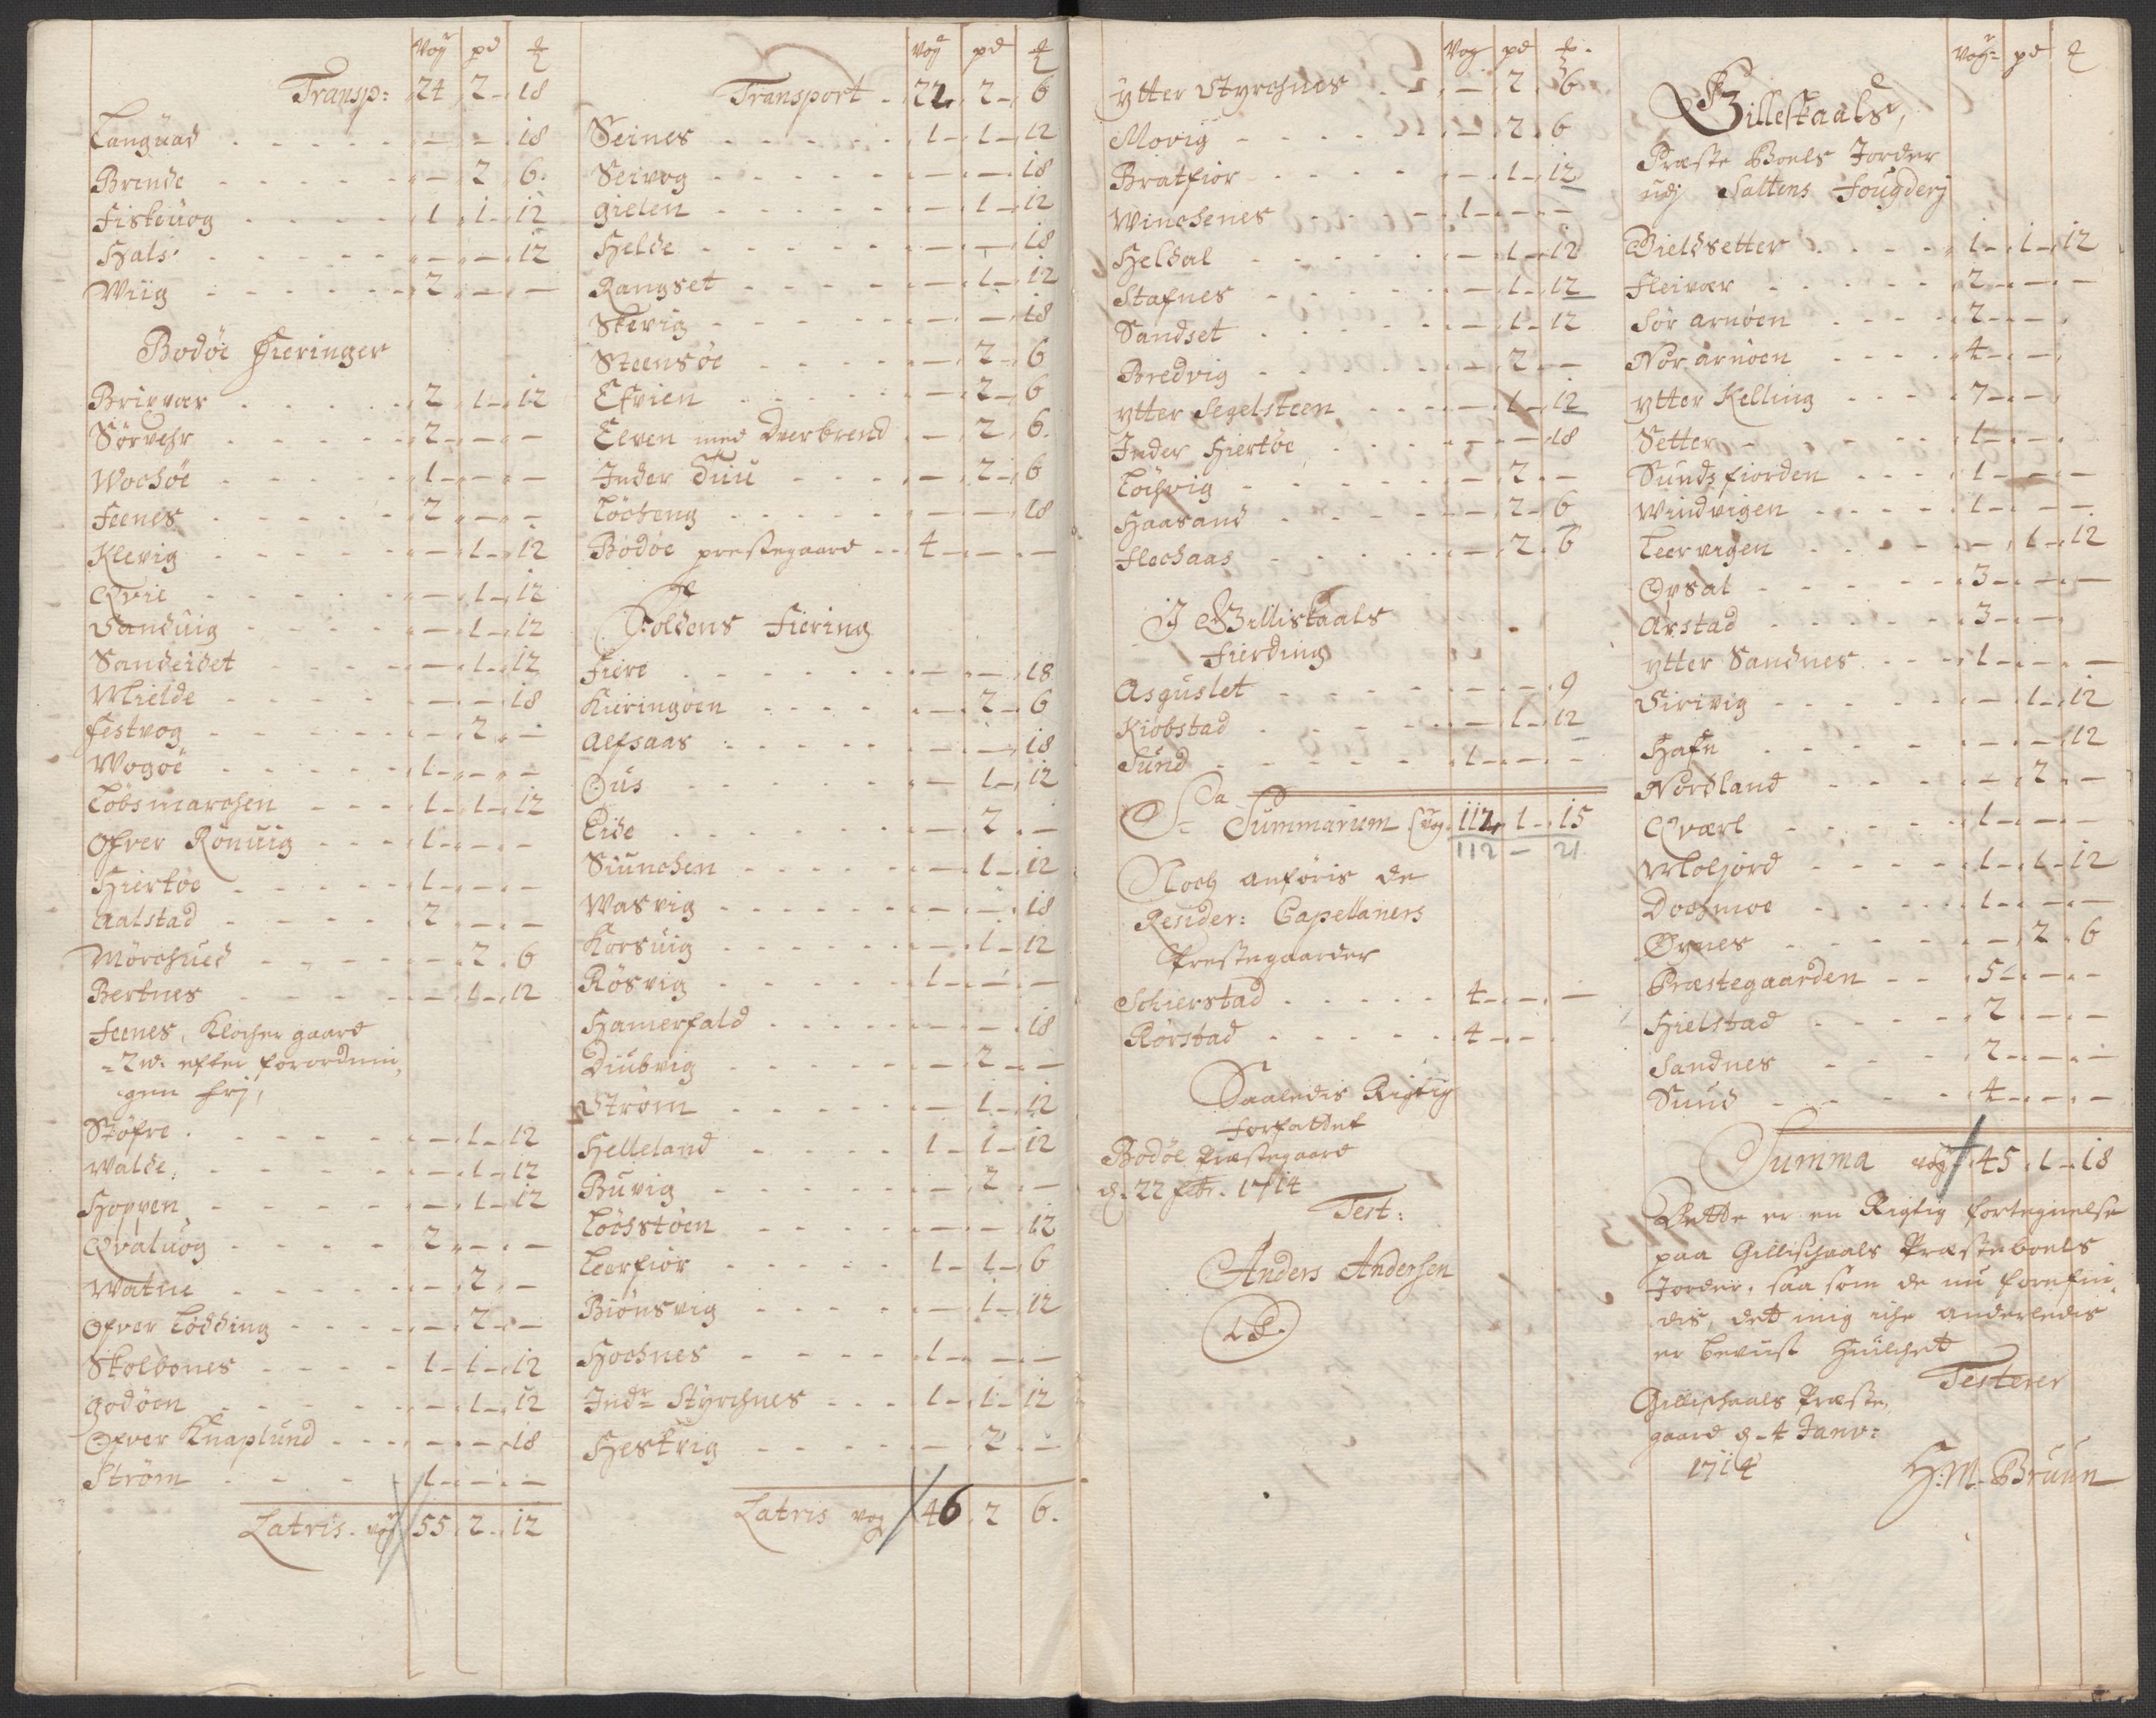 Vog pd ℔
Transp: 24 2 - 18
Langvad - - 18
Brende - 2 6
Fiskeuog 1 1 12
Hals - - 12
Wiig 2 - -
Bodöe Fieringer
Brixvær 2 1 12
Sörvehr 2 - -
Wochöe 1 - -
Feenes 2 - -
Klevig - 1 12
Qvie - 1 12
Sanduig - 1 12
Sandeidet - 1 12
Mielde - - 18
Festvog - 2 -
Wogöe 1 - -
Löbsmarchen 1 1 12
Ofver Rönuig 1 - -
Hiertöe 1 - -
Aalstad 2 - -
Mörchued - 2 6
Bertnes - 1 12
Feenes, Klocher gaard
2 w: efter forordnin
gen frj,
Stöfre - 1 12
Walde - 1 12
Hoppen - 1 12
Qvaluog 2 - -
Watne - 2 -
Ofver Lödding - 2 -
Skolbones 1 1 12
Godöen - 1 12
Ofver Knaplund - - 18
Ström 1 - -
Latris. vog 55 2 12
Vog pd ℔
Transport 22 2 6
Seines 1 1 12
Seivog - - 18
Gielen - 1 12
Helde - - 18
Rangset - 1 12
Skevig - - 18
Steensöe - 2 6
Efvien - 2 6
Elven med Dverbrend - 2 6
Inder Duu - 2 6
Löcheng - - 18
Bodöe prestegaard 4 - -
Foldens Fiering
Fiere - - 18
Kieringöen - 2 6
Alfsaas - - 18
Ous - 1 12
Eide - 2 -
Siunchen - 1 12
Wasvig - - 18
Korsuig - 1 12
Rösvig 1 - -
Hamerfald - - 18
Diubvig - 2 -
Ström - 1 12
Helleland 1 1 12
Buvig - 2 -
Löchstöen - - 12
Leerfiör 1 1 6
Biönsvig - 1 12
Hochnes 1 - -
Indr Styrchnes 1 1 12
Heskvig - 2 -
Latris vog 46 2 6
Vog pd ℔
Ytter Styrchnes - 2 6
Movig - 2 6
Bratfiör - 1 12
Winchenes 1 - -
Heldal - 1 12
Stafnes - 1 12
Sandset - 1 12
Bredvig - 2 -
Ytter Segelsteen - 1 12
Inder Hiertöe - - 18
Löchvig - 2 -
Haasand - 2 6
Flechaas - 2 6
I Gilliskaals
Fierding
Asguslet - - 9
Kiöbstad - 1 12
Sund 1 - -
Sa Summarum vog 112 1 15
112 - 21
Noch anföris de
Resider: Capellaners
Prestegaarder
Schierstad 4 - -
Rörstad 4 - -
Saaledis Rigtig
forfattet
Bodöe Præstegaard
d. 22 febr. 1714
Test:
Anders Andersen
LS.
Vog pd ℔
Gilleskaals,
Præste Boels Jorder
udj Saltens Fougderj
Gieldsetter 1 1 12
Fleivær 2 - -
Sör arnöen 2 - -
Nör arnöen 4 - -
Ytter Kelling 7 - -
Setter 1 - -
Sundsfiorden 1 - -
Windvigen 1 - -
Leervigen - 1 12
Öysal 3 - -
Arstad 3 - -
Ytter Sandnes 1 - -
Sirivig - 1 12
Hafn - - 12
Nordland - 2 -
Qvarl 1 - -
Moljord 1 1 12
Dochmoe 1 - -
Öynes - 2 6
Præstegaarden 5 - -
Hielstad 2 - -
Sandnes 2 - -
Sund 4 - -
Summa vog 45 1 18
Dette er en Rigtig fortegnelse
paa Gillischaals Præsteboels
Jorder, saa som de nu forefin
dis, det mig iche anderledis
er bevust huilchet
Testerer
Gillischaals Præste
gaard d. 4 Janv:
1714
H: M. Bruun